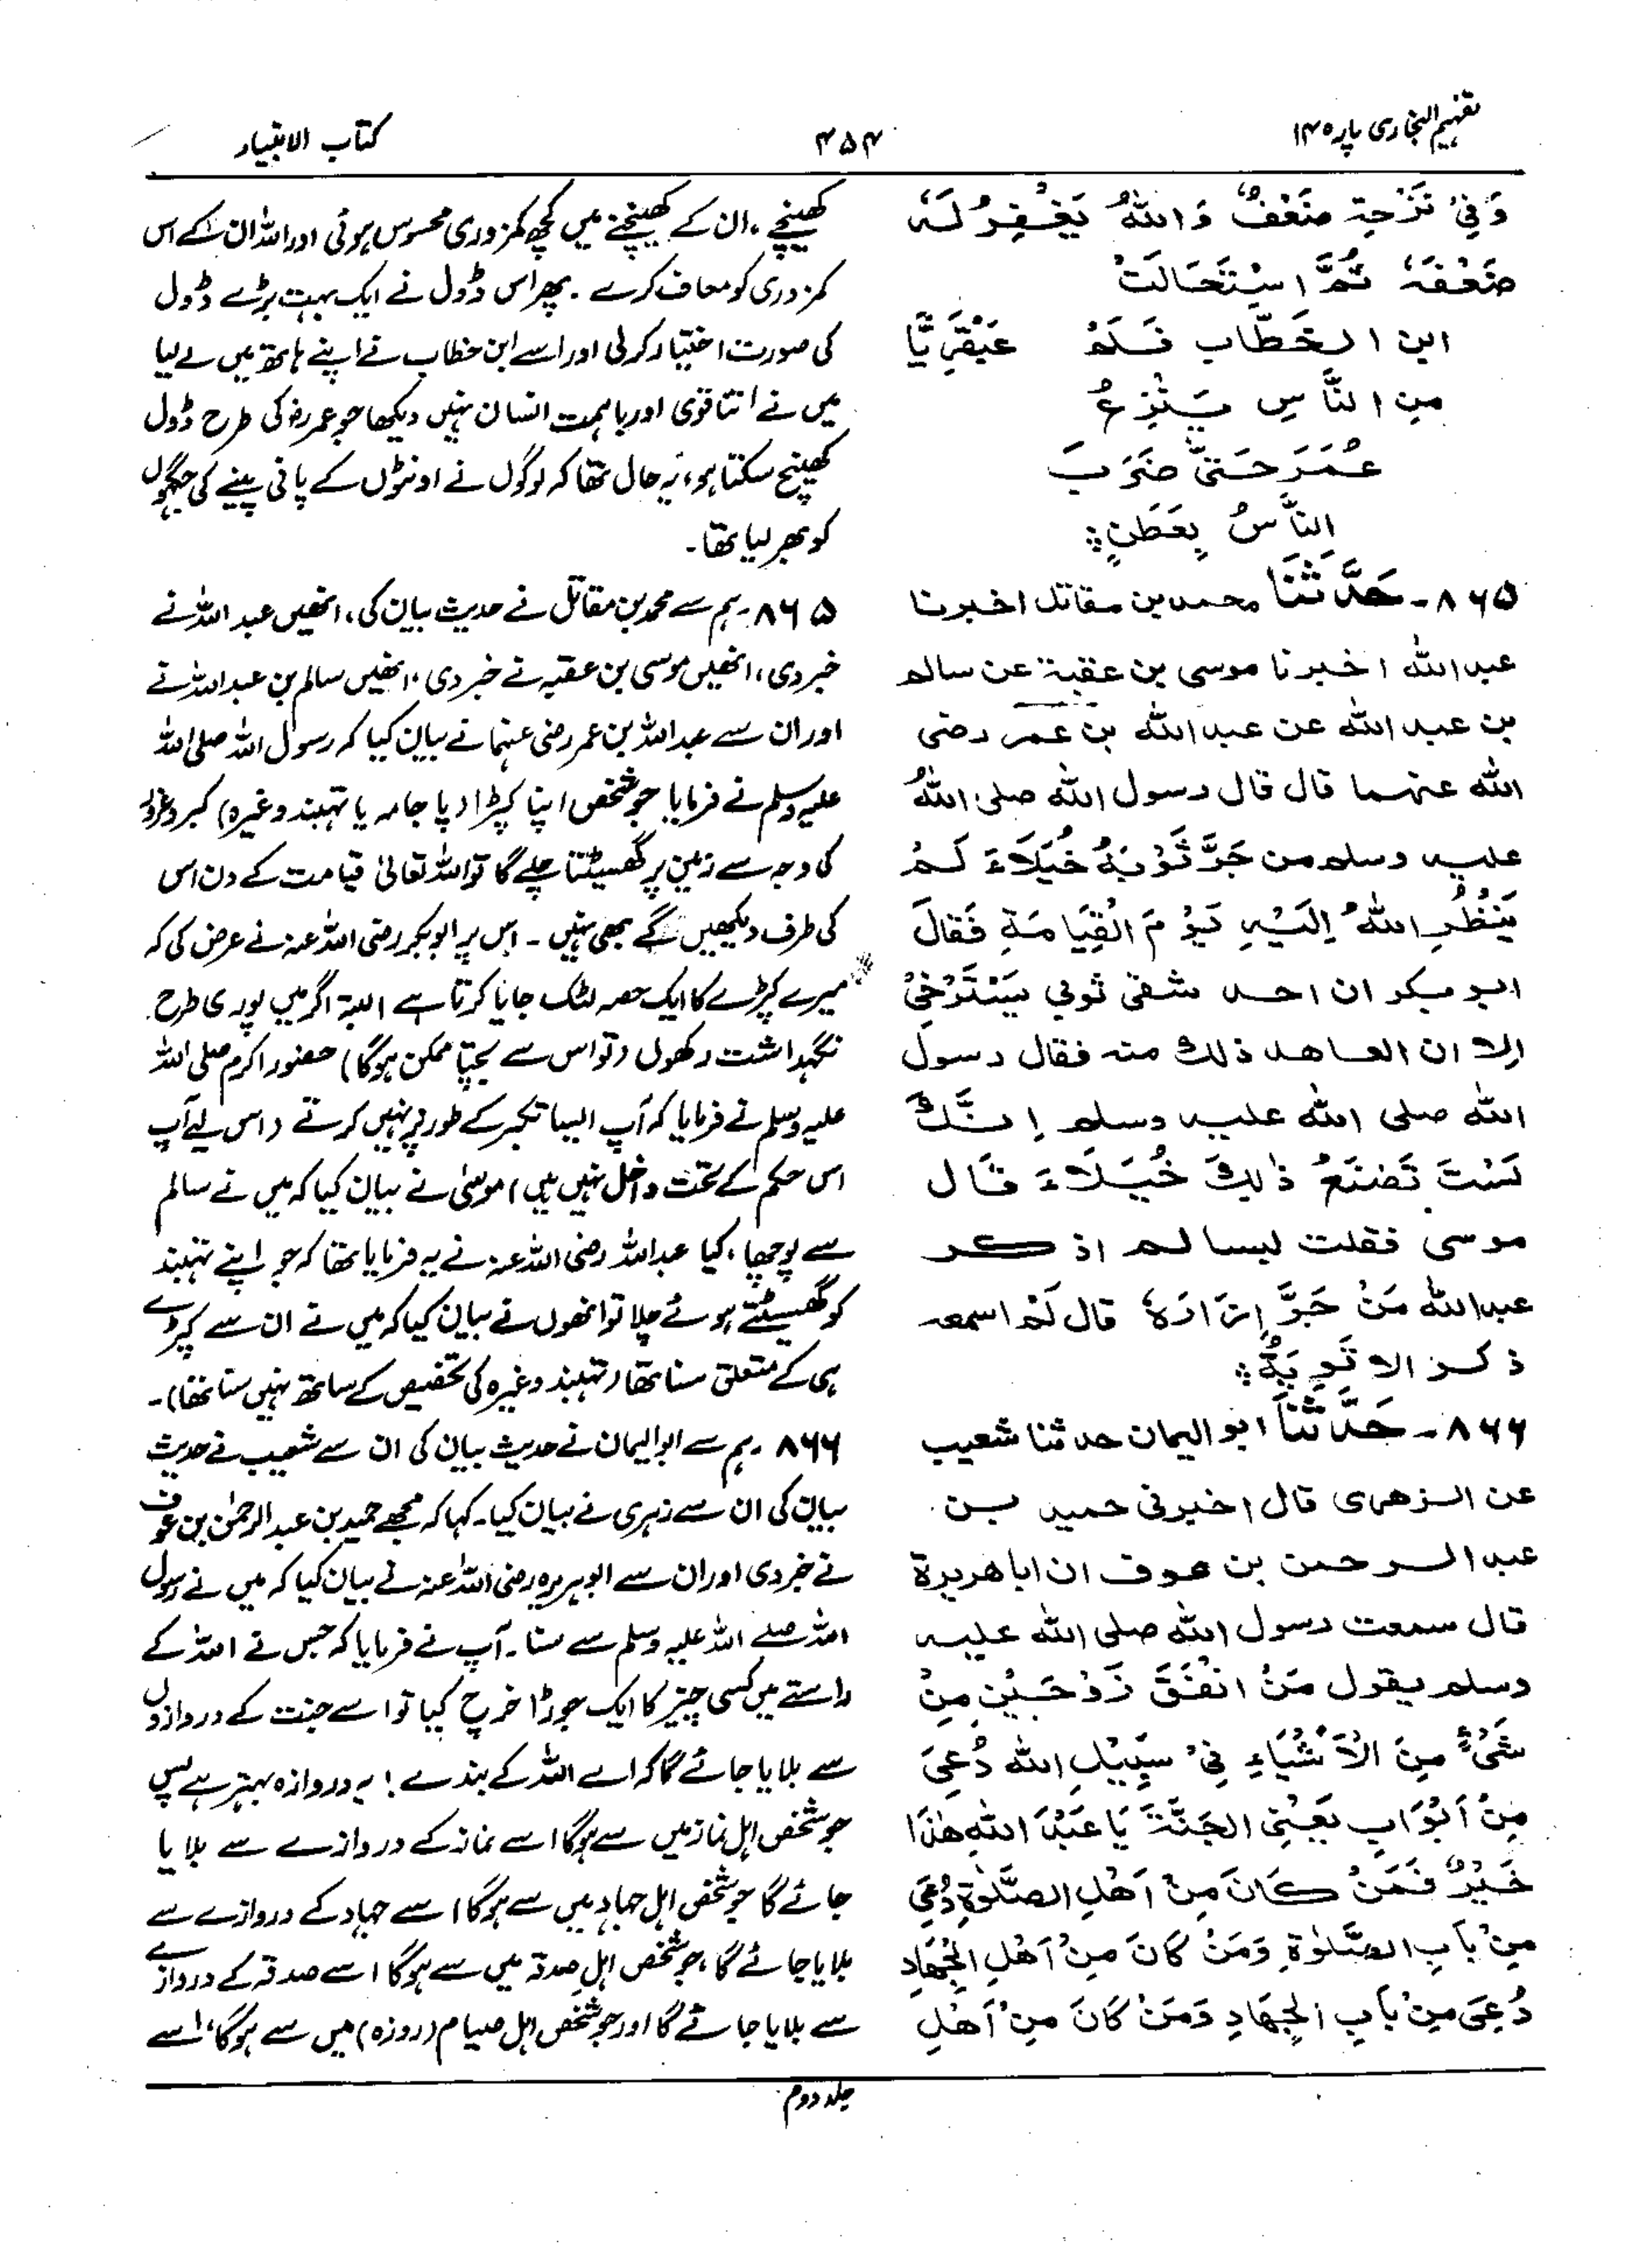 تفہیم البخاری پارہ ۱۴
۴۵۴
کتاب الانبیاء
وَفِیْ نَزْعِہٖ ضَعْفٌ وَاللہُ یَغْفِرُ لَہٗ
ضَعْفَہٗ ثُمَّ اسْتَحَالَتْ
ابن الخَطَّاب فَلَمْ عَبْقَرِیًّا
مِن النَّاسِ یَنْزِعُ
عُمَرَ حَتّٰی ضَرَبَ
النَّاسُ بِعَطَنٍ
۸۶۵۔ حَدَّثَنَا محمد بن مقاتل اخبرنا
عبد اللہ اخبرنا موسی بن عقبۃ عن سالم
بن عبد اللہ عن عبد اللہ بن عمر رضی
اللہ عنہما قال قال رسول اللہ صلی اللہُ
علیہ وسلم من جَرَّ ثَوْبَہُ خُیَلَاءَ لَمْ
یَنْظُرِ اللہُ اِلَیْہِ یَوْمَ الْقِیَامَۃِ فَقَالَ
ابو بکر ان احد شقی ثوبی یَسْتَرْخِیْ
الا ان اتعاھد ذلک منہ فقال رسول
اللہ صلی اللہ علیہ وسلم اِنَّکَ
لَسْتَ تَصْنَعُ ذٰلِکَ خُیَلَاءَ قَال
موسی فقلت لسالم اذکر
عبد اللہ مَنْ جَرَّ اِزَارَہٗ قال لَمْ اسمعہ
ذکر الا ثَوبَہُ
۸۶۶۔ حَدَّثَنَا ابو الیمان حدثنا شعیب
عن الزھری قال اخبرنی حمید بن
عبد الرحمن بن عوف ان ابا ھریرۃ
قال سمعت رسول اللہ صلی اللہ علیہ
وسلم یقول مَنْ انْفَقَ زَوْجَیْنِ مِنْ
شَیْءٍ مِنَ الْاَشْیَاءِ فِیْ سَبِیْلِ اللہ دُعِیَ
مِنْ اَبْوَابِ یَعْنِی الجَنَّۃَ یَا عَبْدَ اللہِ ھٰذَا
خَیْرٌ فَمَنْ کَانَ مِنْ اَھْلِ الصَّلٰوۃِ دُعِیَ
مِنْ بَابِ الصَّلٰوۃِ وَمَنْ کَانَ مِنْ اَھْلِ الْجِھَادِ
دُعِیَ مِنْ بَابِ الْجِھَادِ وَمَنْ کَانَ مِنْ اَھْلِ
کھینچے، ان کے کھینچنے میں کچھ کمزوری محسوس ہوئی اور اللہ ان کے اس
کمزوری کو معاف کرے۔ پھر اس ڈول نے ایک بہت بڑے ڈول
کی صورت اختیار کرلی اور اسے ابن خطاب نے اپنے ہاتھ میں لے لیا
میں نے اتنا قوی اور باہمت انسان نہیں دیکھا جو عمرؓ کی طرح ڈول
کھینچ سکتا ہو، یہ حال تھا کہ لوگوں نے اونٹوں کے پانی پینے کی جگہوں
کو بھر لیا تھا۔
۸۶۵۔ ہم سے محمد بن مقاتل نے حدیث بیان کی، انھیں عبد اللہ نے
خبر دی، انھیں موسی بن عقبہ نے خبر دی، انھیں سالم بن عبد اللہ نے
اور ان سے عبد اللہ بن عمر رضی عنہما نے بیان کیا کہ رسول اللہ صلی اللہ
علیہ وسلم نے فرمایا جو شخص اپنا کپڑا (پاجامہ یا تہبند وغیرہ) کبر وغرور
کی وجہ سے زمین پر گھسیٹتا چلے گا تو اللہ تعالیٰ قیامت کے دن اس
کی طرف دیکھیں گے بھی نہیں۔ اس پر ابو بکر رضی اللہ عنہ نے عرض کی کہ
میرے کپڑے کا ایک حصہ لٹک جایا کرتا ہے البتہ اگر میں پوری طرح
نگہداشت رکھوں (تو اس سے بچنا ممکن ہوگا) حضور اکرم صلی اللہ
علیہ وسلم نے فرمایا کہ آپ ایسا تکبر کے طور پر نہیں کرتے (اس لیے آپ
اس حکم کے تحت داخل نہیں ہیں) موسیٰ نے بیان کیا کہ میں نے سالم
سے پوچھا، کیا عبد اللہ رضی اللہ عنہ نے یہ فرمایا تھا کہ جو اپنے تہبند
کو گھسیٹتے ہوئے چلا تو انھوں نے بیان کیا کہ میں نے ان سے کپڑے
ہی کے متعلق سنا تھا (تہبند وغیرہ کی تخصیص کے ساتھ نہیں سنا تھا)۔
۸۶۶۔ ہم سے ابو الیمان نے حدیث بیان کی ان سے شعیب نے حدیث
بیان کی ان سے زہری نے بیان کیا۔ کہا کہ مجھے حمید بن عبد الرحمٰن بن عوف
نے خبر دی اور ان سے ابو ہریرہ رضی اللہ عنہ نے بیان کیا کہ میں نے رسول
اللہ صلے اللہ علیہ وسلم سے سنا۔ آپ نے فرمایا کہ جس نے اللہ کے
راستے میں کسی چیز کا ایک جوڑا خرچ کیا تو اسے جنت کے دروازوں
سے بلایا جائے گا کہ اے اللہ کے بندے! یہ دروازہ بہتر ہے پس
جو شخص اہل نماز میں سے ہوگا اسے نماز کے دروازے سے بلایا
جائے گا جو شخص اہل جہاد میں سے ہوگا اسے جہاد کے دروازے سے
بلایا جائے گا، جو شخص اہل صدقہ میں سے ہوگا اسے صدقہ کے دروازے
سے بلایا جائے گا اور جو شخص اہل صیام (روزہ) میں سے ہوگا، اسے
جلد دوم